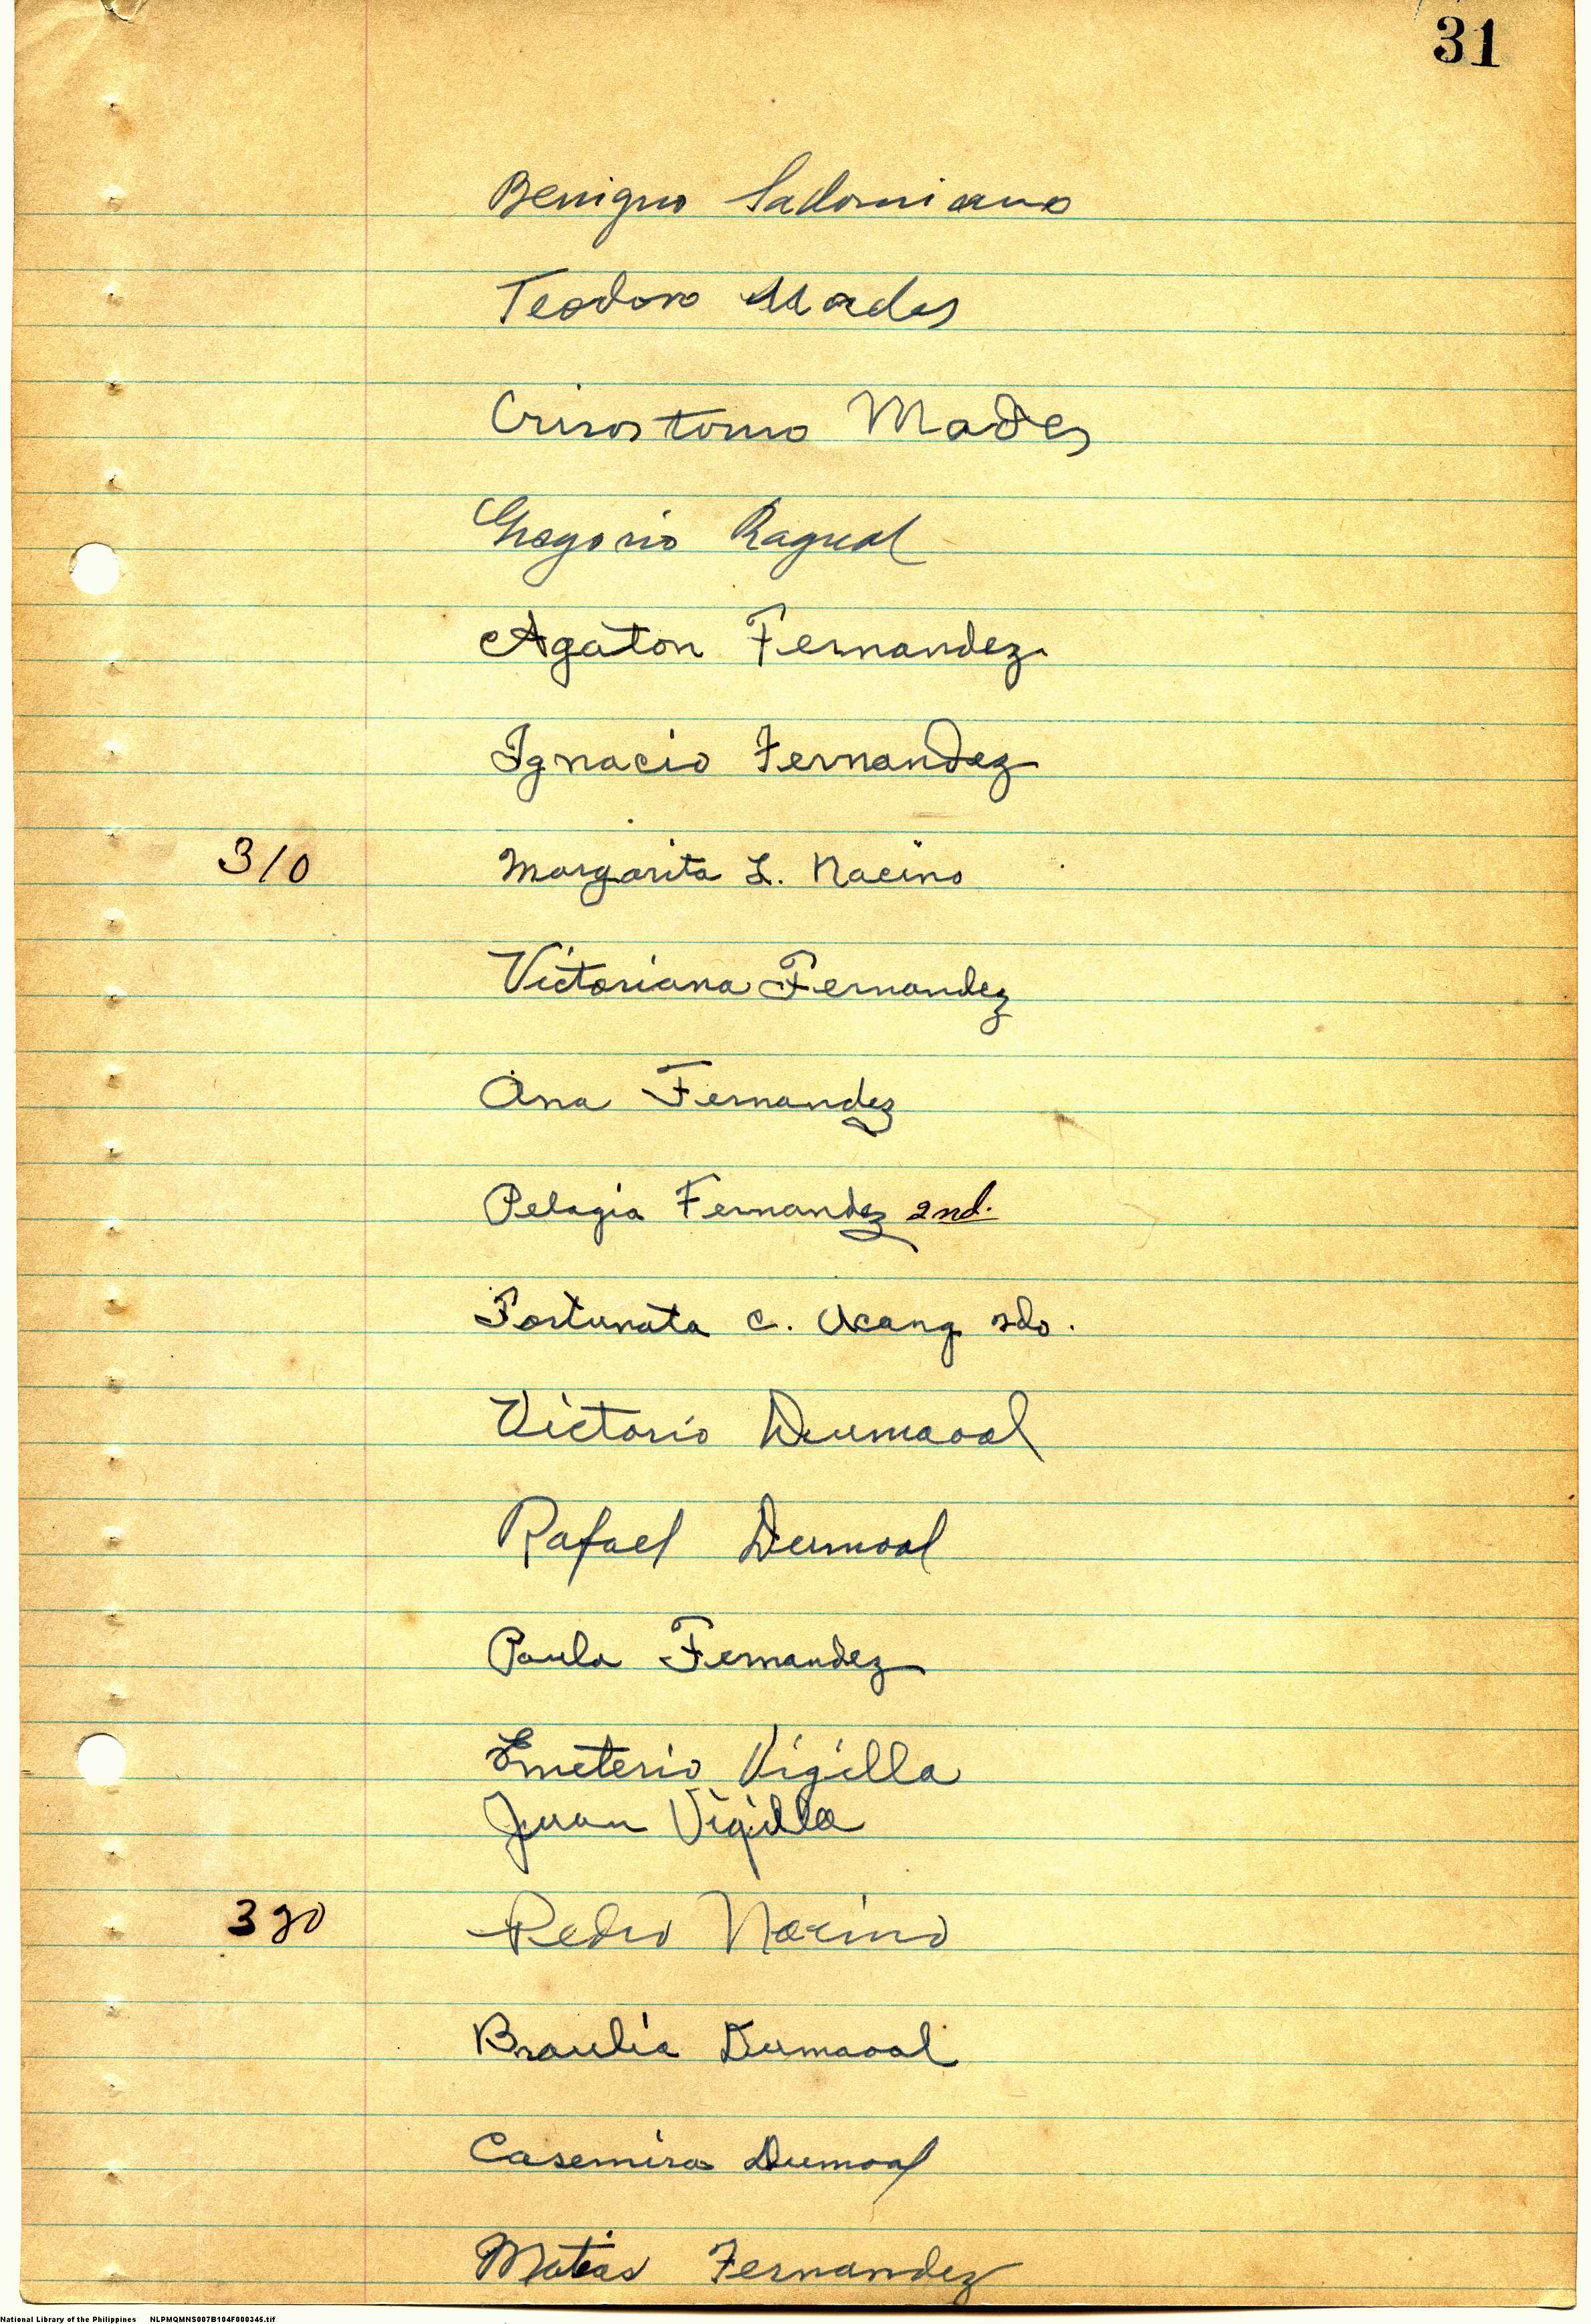 31
Benigno Sadomiano
Teodoro Mades
Crisostomo Mades
Gregorio Ragual
Agaton Fernandez
Ignacio Fernandez
310 Margarita L. Nacino
Victoriana Fernandez
Ana Fernandez
Pelagia Fernandez 2nd.
Fortunata C. Ucang
Victorio Dumaoal
Rafael Dumoal
Paula Fernandez
Emeterio Vigilla
Juan Vigilla
320 Pedro Nacino
Braulia Dumaoal
Casemira Dumoal
Matias Fernandez
National Library of the Philippines NLPMQMNS007B104F000345.tif